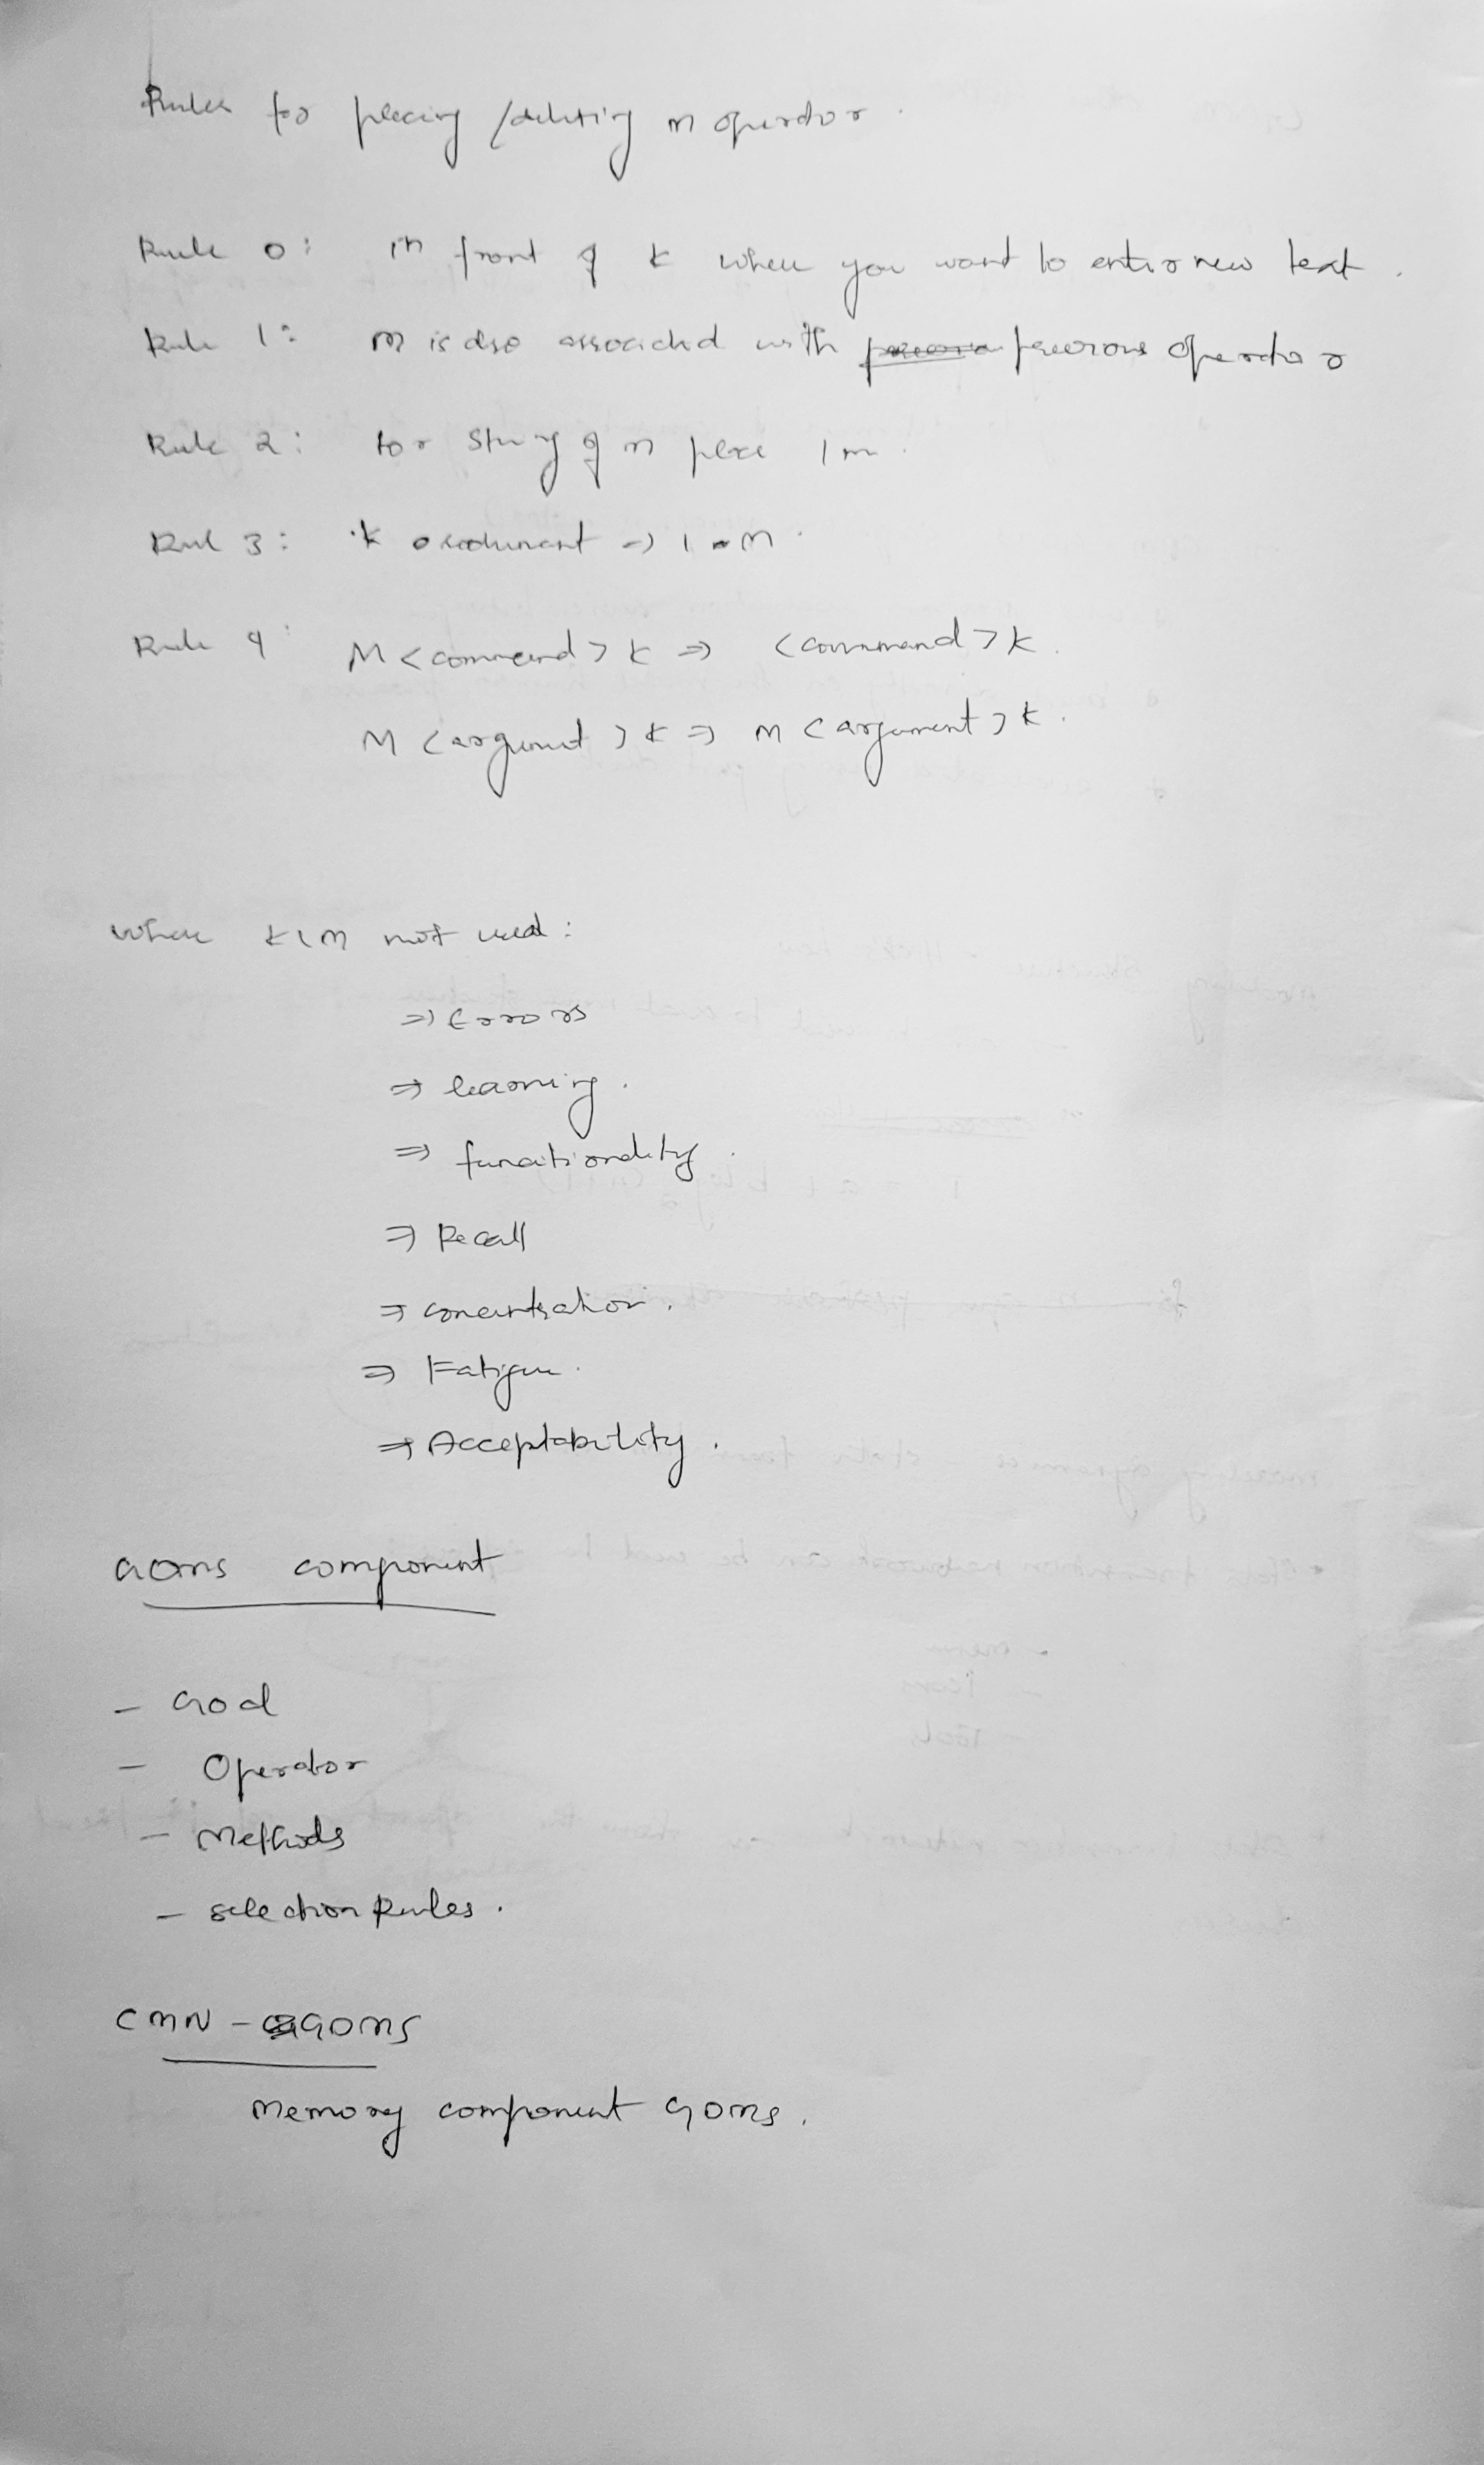 Rules for placing / deleting M operator.
Rule 0: in front of K when you want to enter new text.
Rule 1: M is also associated with previous operator
Rule 2: for string of m place 1 m.
Rule 3: K redundant => 1 M.
Rule 4: M <command> K => <command> K.
M <argument> K => M <argument> K.
Where KLM not used:
=> Errors
=> learning.
=> functionality.
=> Recall
=> concentration.
=> Fatigue.
=> Acceptability.
GOMS component
- Goal
- Operator
- Methods
- selection Rules.
CMN - GOMS
Memory component GOMS.